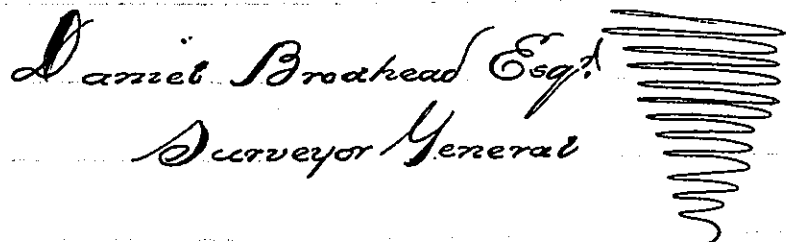 Daniel Brodhead Esqr.
Surveyor General